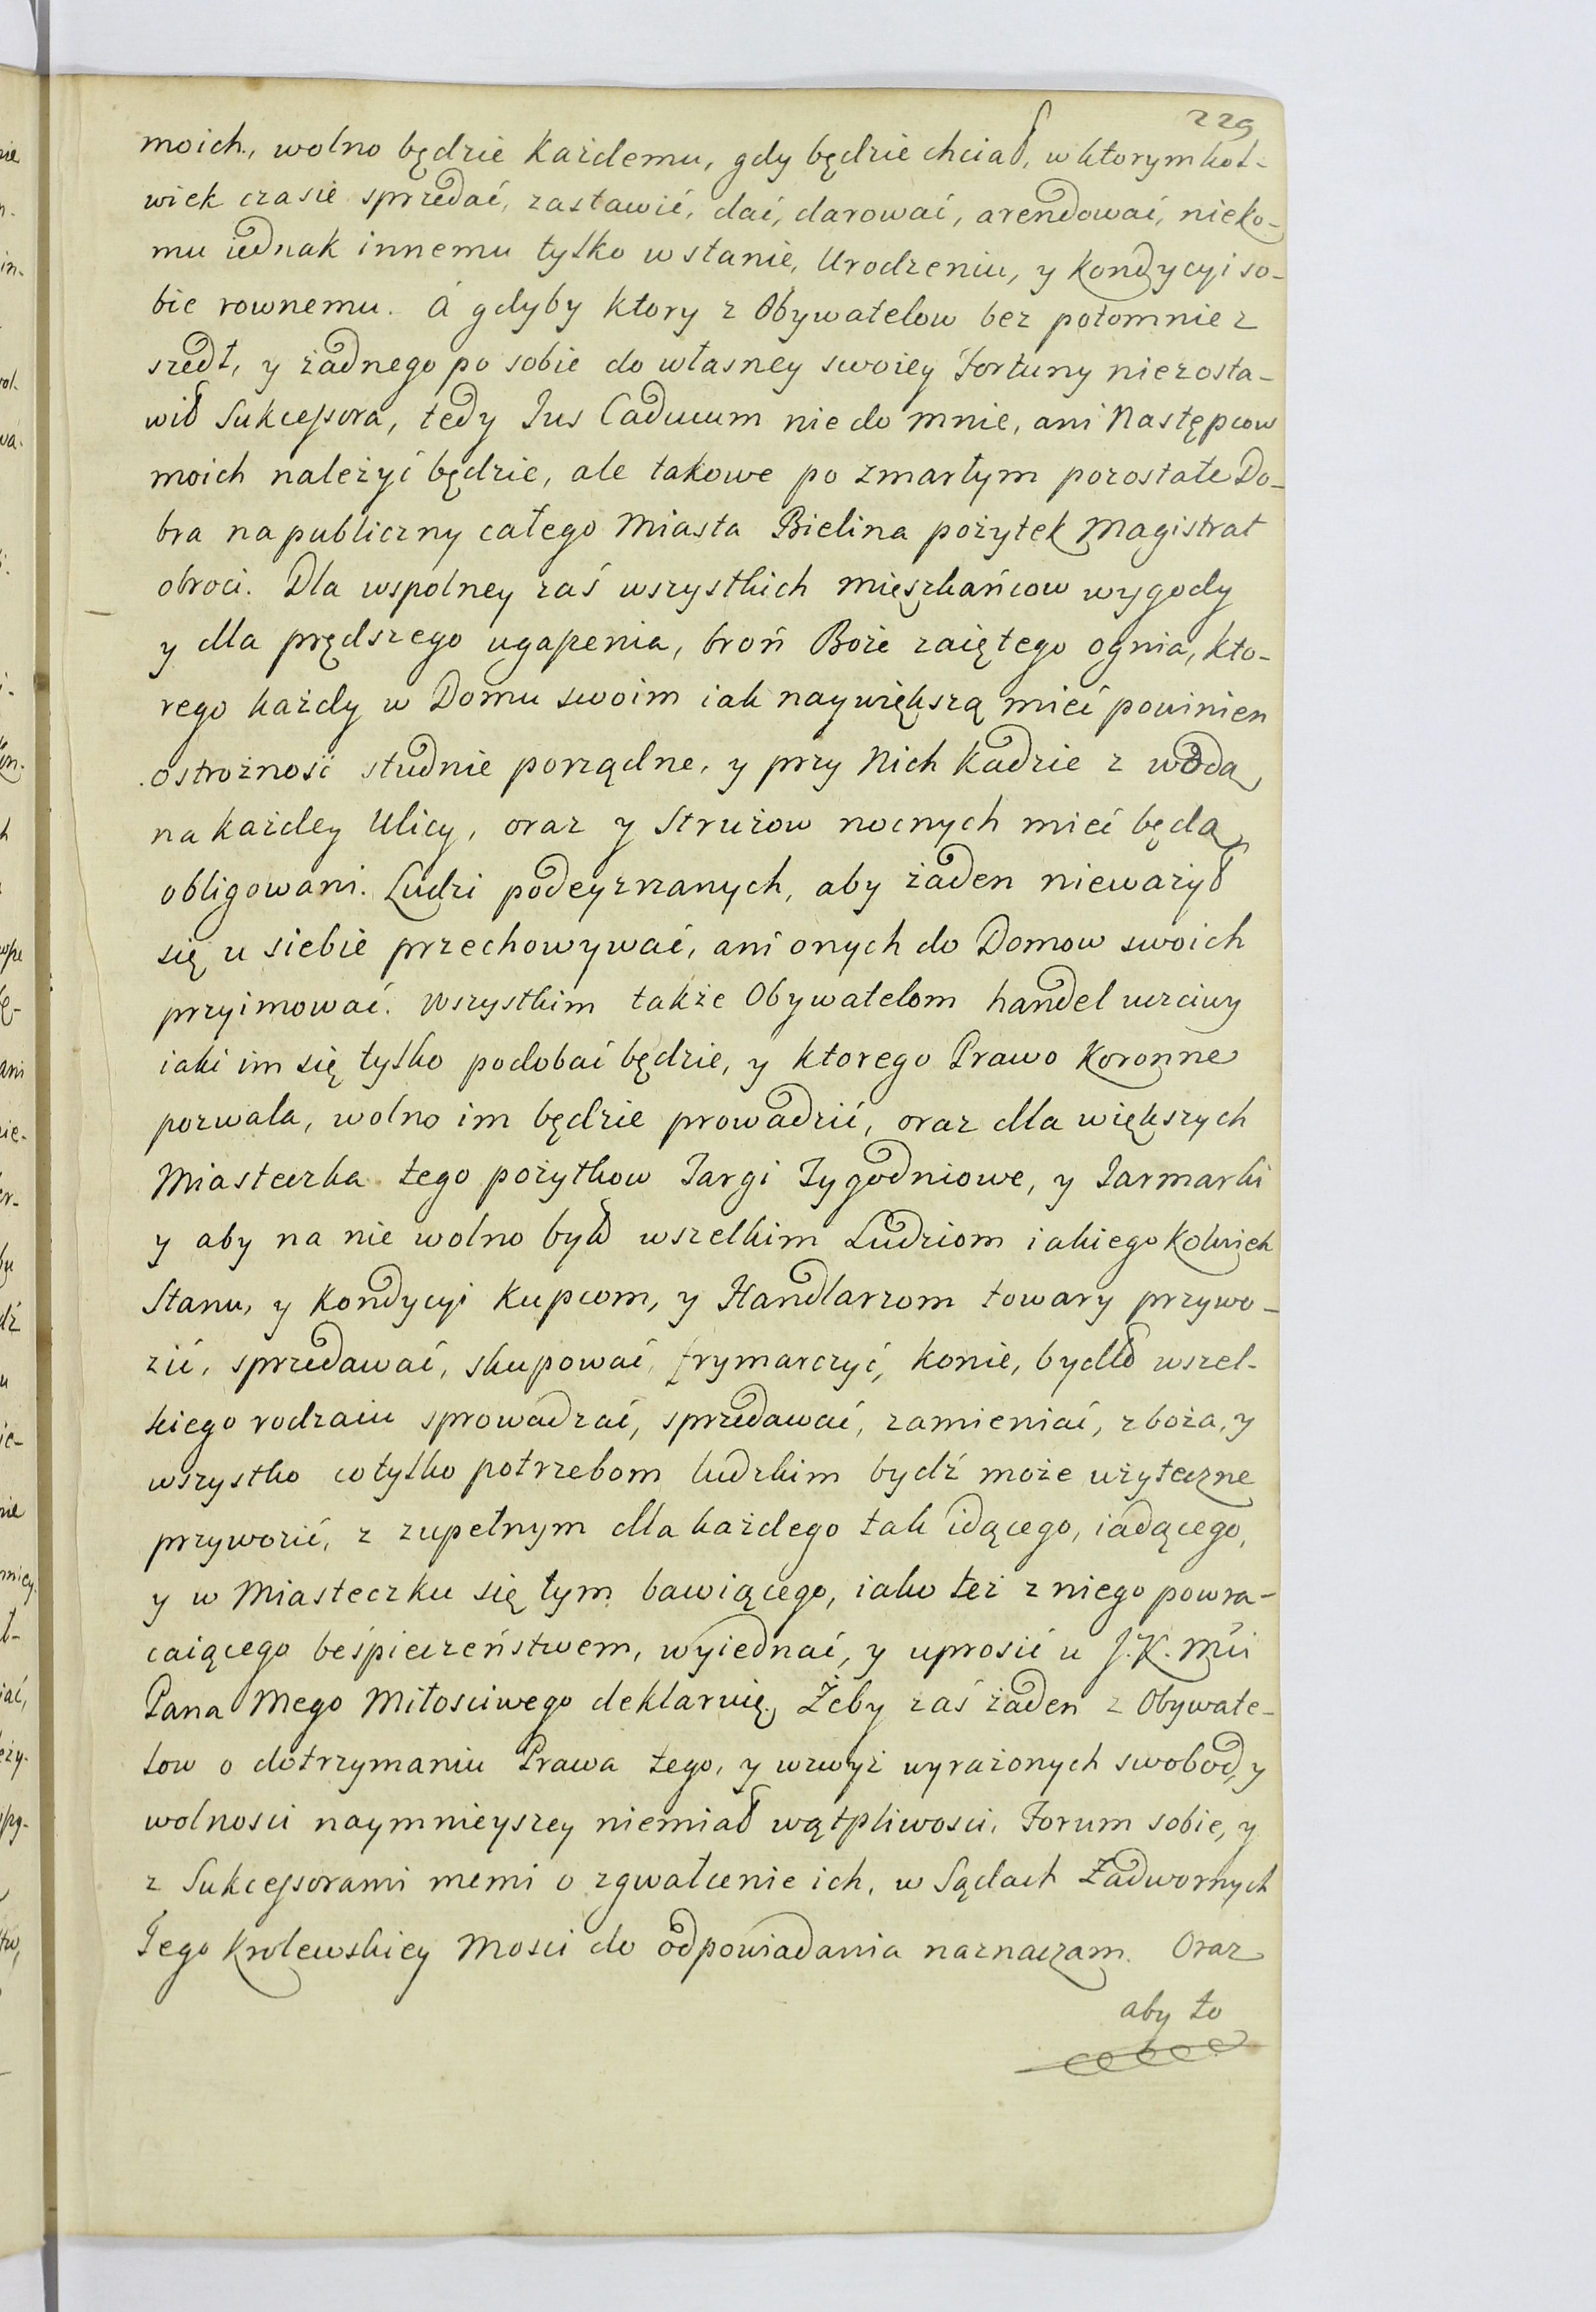 229
moich, wolno będzie każdemu, gdy będzie chciał, w ktorymkol-
wiek czasie sprzedać, zastawić, dać, darować, arendować, nieko-
mu iednak innemu tylko w stanie, Urodzeniu, y Kondycyi so-
bie rownemu. A gdyby ktory z Obywatelow bez potomnie z
szedł, y żadnego po sobie do własney swoiey Fortuny niezosta-
wił Sukcessora, tedy Jus Caducum nie do mnie, ani Następcow
moich należyć będzie, ale takowe po zmarłym pozostałe Do-
bra na publiczny całego Miasta Bielina pożytek Magistrat
obroci. Dla wspolney zaś wszystkich Mieszkańcow wygody
y dla prędszego ugaszenia, broń Boże zaiętego ognia, kto-
rego każdy w Domu swoim iak naywiększą mieć powinien
ostrożność studnie porządne, y przy Nich Kadzie z wodą
na każdey Ulicy, oraz y Strużow nocnych mieć będą
obligowani. Ludzi podeyrzanych, aby żaden nieważył
się u siebie przechowywać, ani onych do Domow swoich
przyimować. Wszystkim także Obywatelom handel uczciwy
iaki im się tylko podobać będzie, y ktorego Prawo Koronne
pozwala, wolno im będzie prowadzić, oraz dla większych
Miasteczka tego pożytkow Targi Tygodniowe, y Jarmarki
y aby na nie wolno było wszelkim Ludziom iakiego kolwiek
Stanu, y Kondycyi Kupcom, y Handlarzom towary przywo-
zić, sprzedawać, skupować, frymarczyć, konie, bydło wszel-
kiego rodzaiu sprowadzać, sprzedawać, zamieniać, zboża, y
wszystko co tylko potrzebom ludzkim bydź może użyteczne
przywozić, z zupełnym dla każdego tak idącego, iadącego,
y w Miasteczku się tym bawiącego, iako też z niego powra-
caiącego beśpieczeństwem, wyiednać, y uprosić u J. K. Mći
Pana Mego Miłosciwego deklaruię. Żeby zaś żaden z Obywate-
low o dotrzymaniu Prawa tego, y wzwyż wyrażonych swobod, y
wolnosci naymnieyszey niemiał wątpliwosci, Forum sobie, y
z Sukcessorami memi o zgwałcenie ich, w Sądach Zadwornych
Jego Krolewskiey Mosci do odpowiadania naznaczam. Oraz
aby to